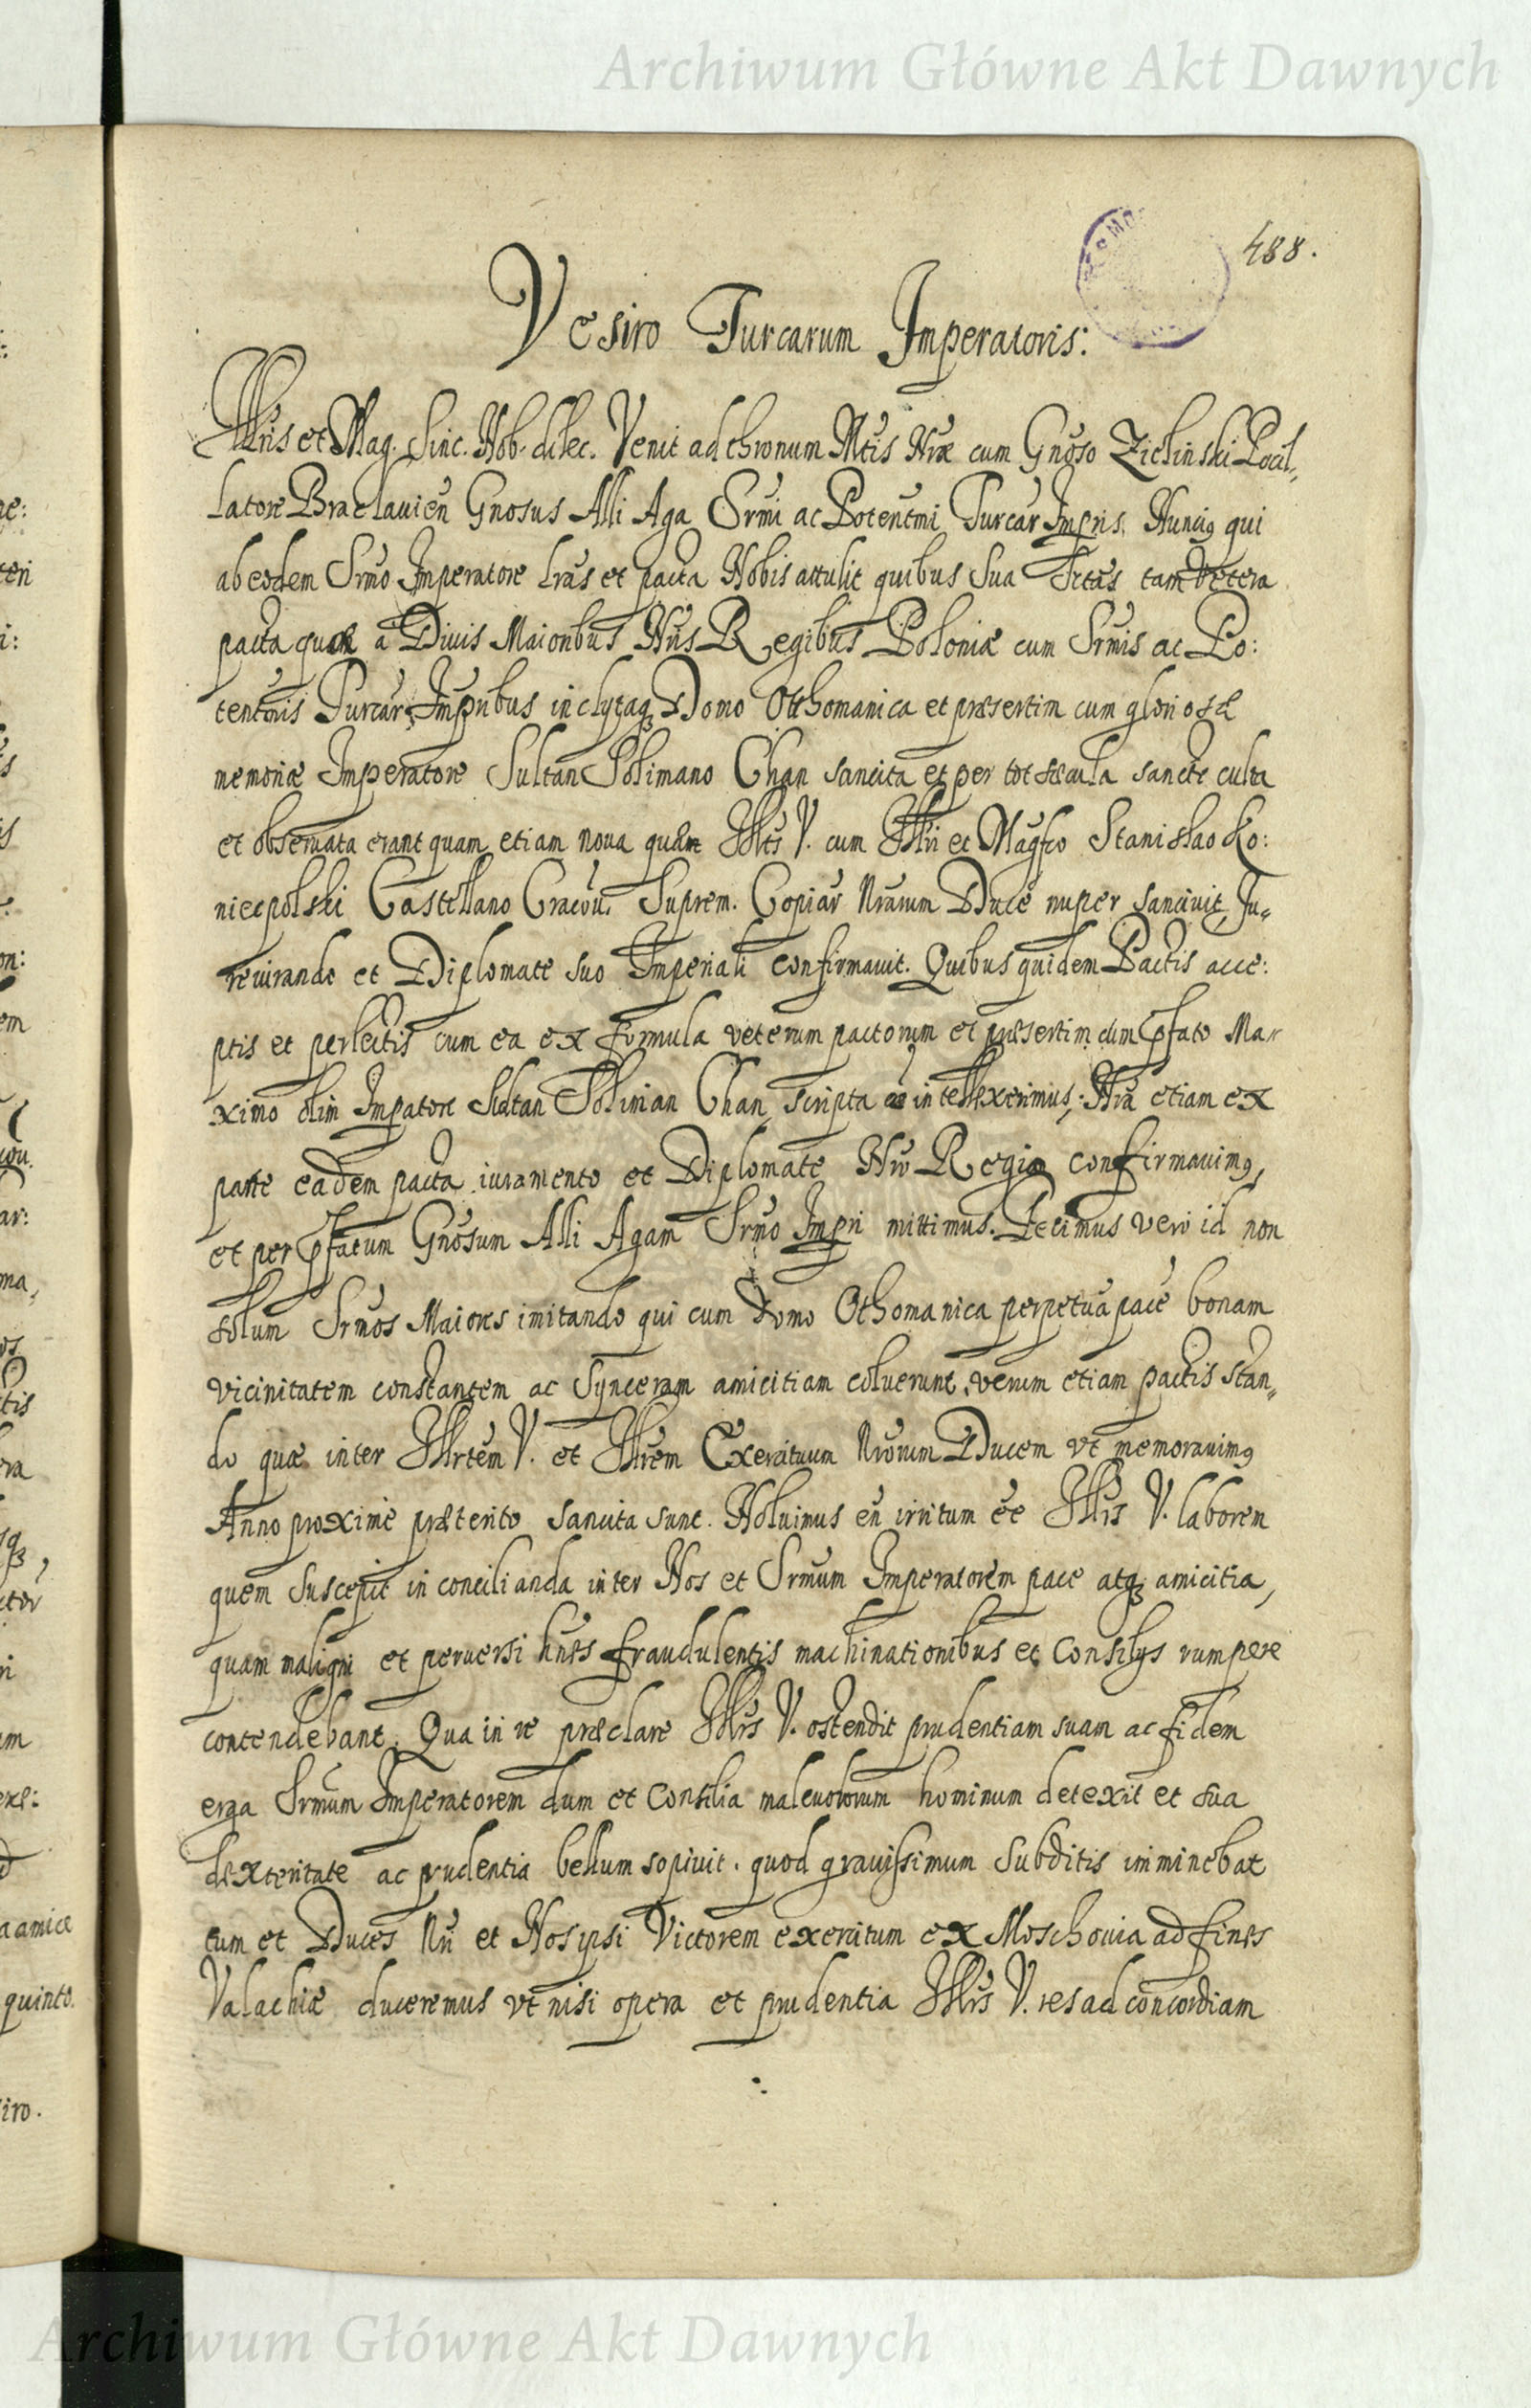 Archiwum Główne Akt Dawnych
488.
Vesiro Turcarum Imperatoris:
Illris et Mag. Sinc. Nob. dilec. Venit ad thronum Mtis Nræ cum Gnoso Zichinski Pocil„
latore Braclauien Gnosus Alli Aga Srmi ac Potentmi Turcar Impris. Nunciꝰ qui
ab eodem Srmo Imperatore Lras et pacta Nobis attulit quibus Sua Srtas tam vetera
pacta quæ a Diuis Maioribus Nris Regibus Poloniæ cum Srmis ac Po:
tentmis Turcar. Impribus inclytaqꝫ Domo Otthomanica et præsertim cum gloriosæ
memoriæ Imperatore Sultan Solimano Chan sancita et per tot sæcula sancte culta
et obseruata erant quam etiam noua quæ Illtis V. cum Illri et Magfco Stanislao Ko:
niecpolski Castellano Cracou. Suprem. Copiar Nrarum Duce nuper sanciuit, Ju„
reiurando et Diplomate suo Imperiali confirmauit. Quibus quidem Pactis acce:
ptis et perlectis cum ea ex formula veterum pactorum et præsertim cum pfato Ma„
ximo olim Impatore Sultan Soliman Chan scripta intellexerimus; Nra etiam ex
parte eadem pacta iuramento et Diplomate Nro Regio confirmauimꝰ,
et per pfatum Gnosum Alli Agam Srmo Impri mittimus. Fecimus vero id non
solum Srmos Maiores imitando qui cum Domo Othomanica perpetua pace bonam
vicinitatem constantem ac Synceram amicitiam coluerunt, verum etiam pactis stan„
do quæ inter Illrtem V. et Illrem Exercituum Nrorum Ducem vt memorauimꝰ
Anno proxime præterito sancita sunt. Noluimus en irritum ee Illris V. laborem
quem suscepit in concilianda inter Nos et Srmum Imperatorem pace atqꝫ amicitia,
quam maligni et peruersi hnes fraudulentis machinationibus et Consilys rumpere
contendebant. Qua in re præclare Illris V. ostendit prudentiam suam ac fidem
erga Srmum Imperatorem dum et Consilia maleuolorum hominum detexit et sua
dexteritate ac prudentia bellum sopiuit. quod grauissimum Subditis imminebat
cum et Duces Nri et Nos ipsi Victorem exercitum ex Moschouia ad fines
Valachiæ duceremus vt nisi opera et prudentia Illris V. res ad concordiam
Archiwum Główne Akt Dawnych